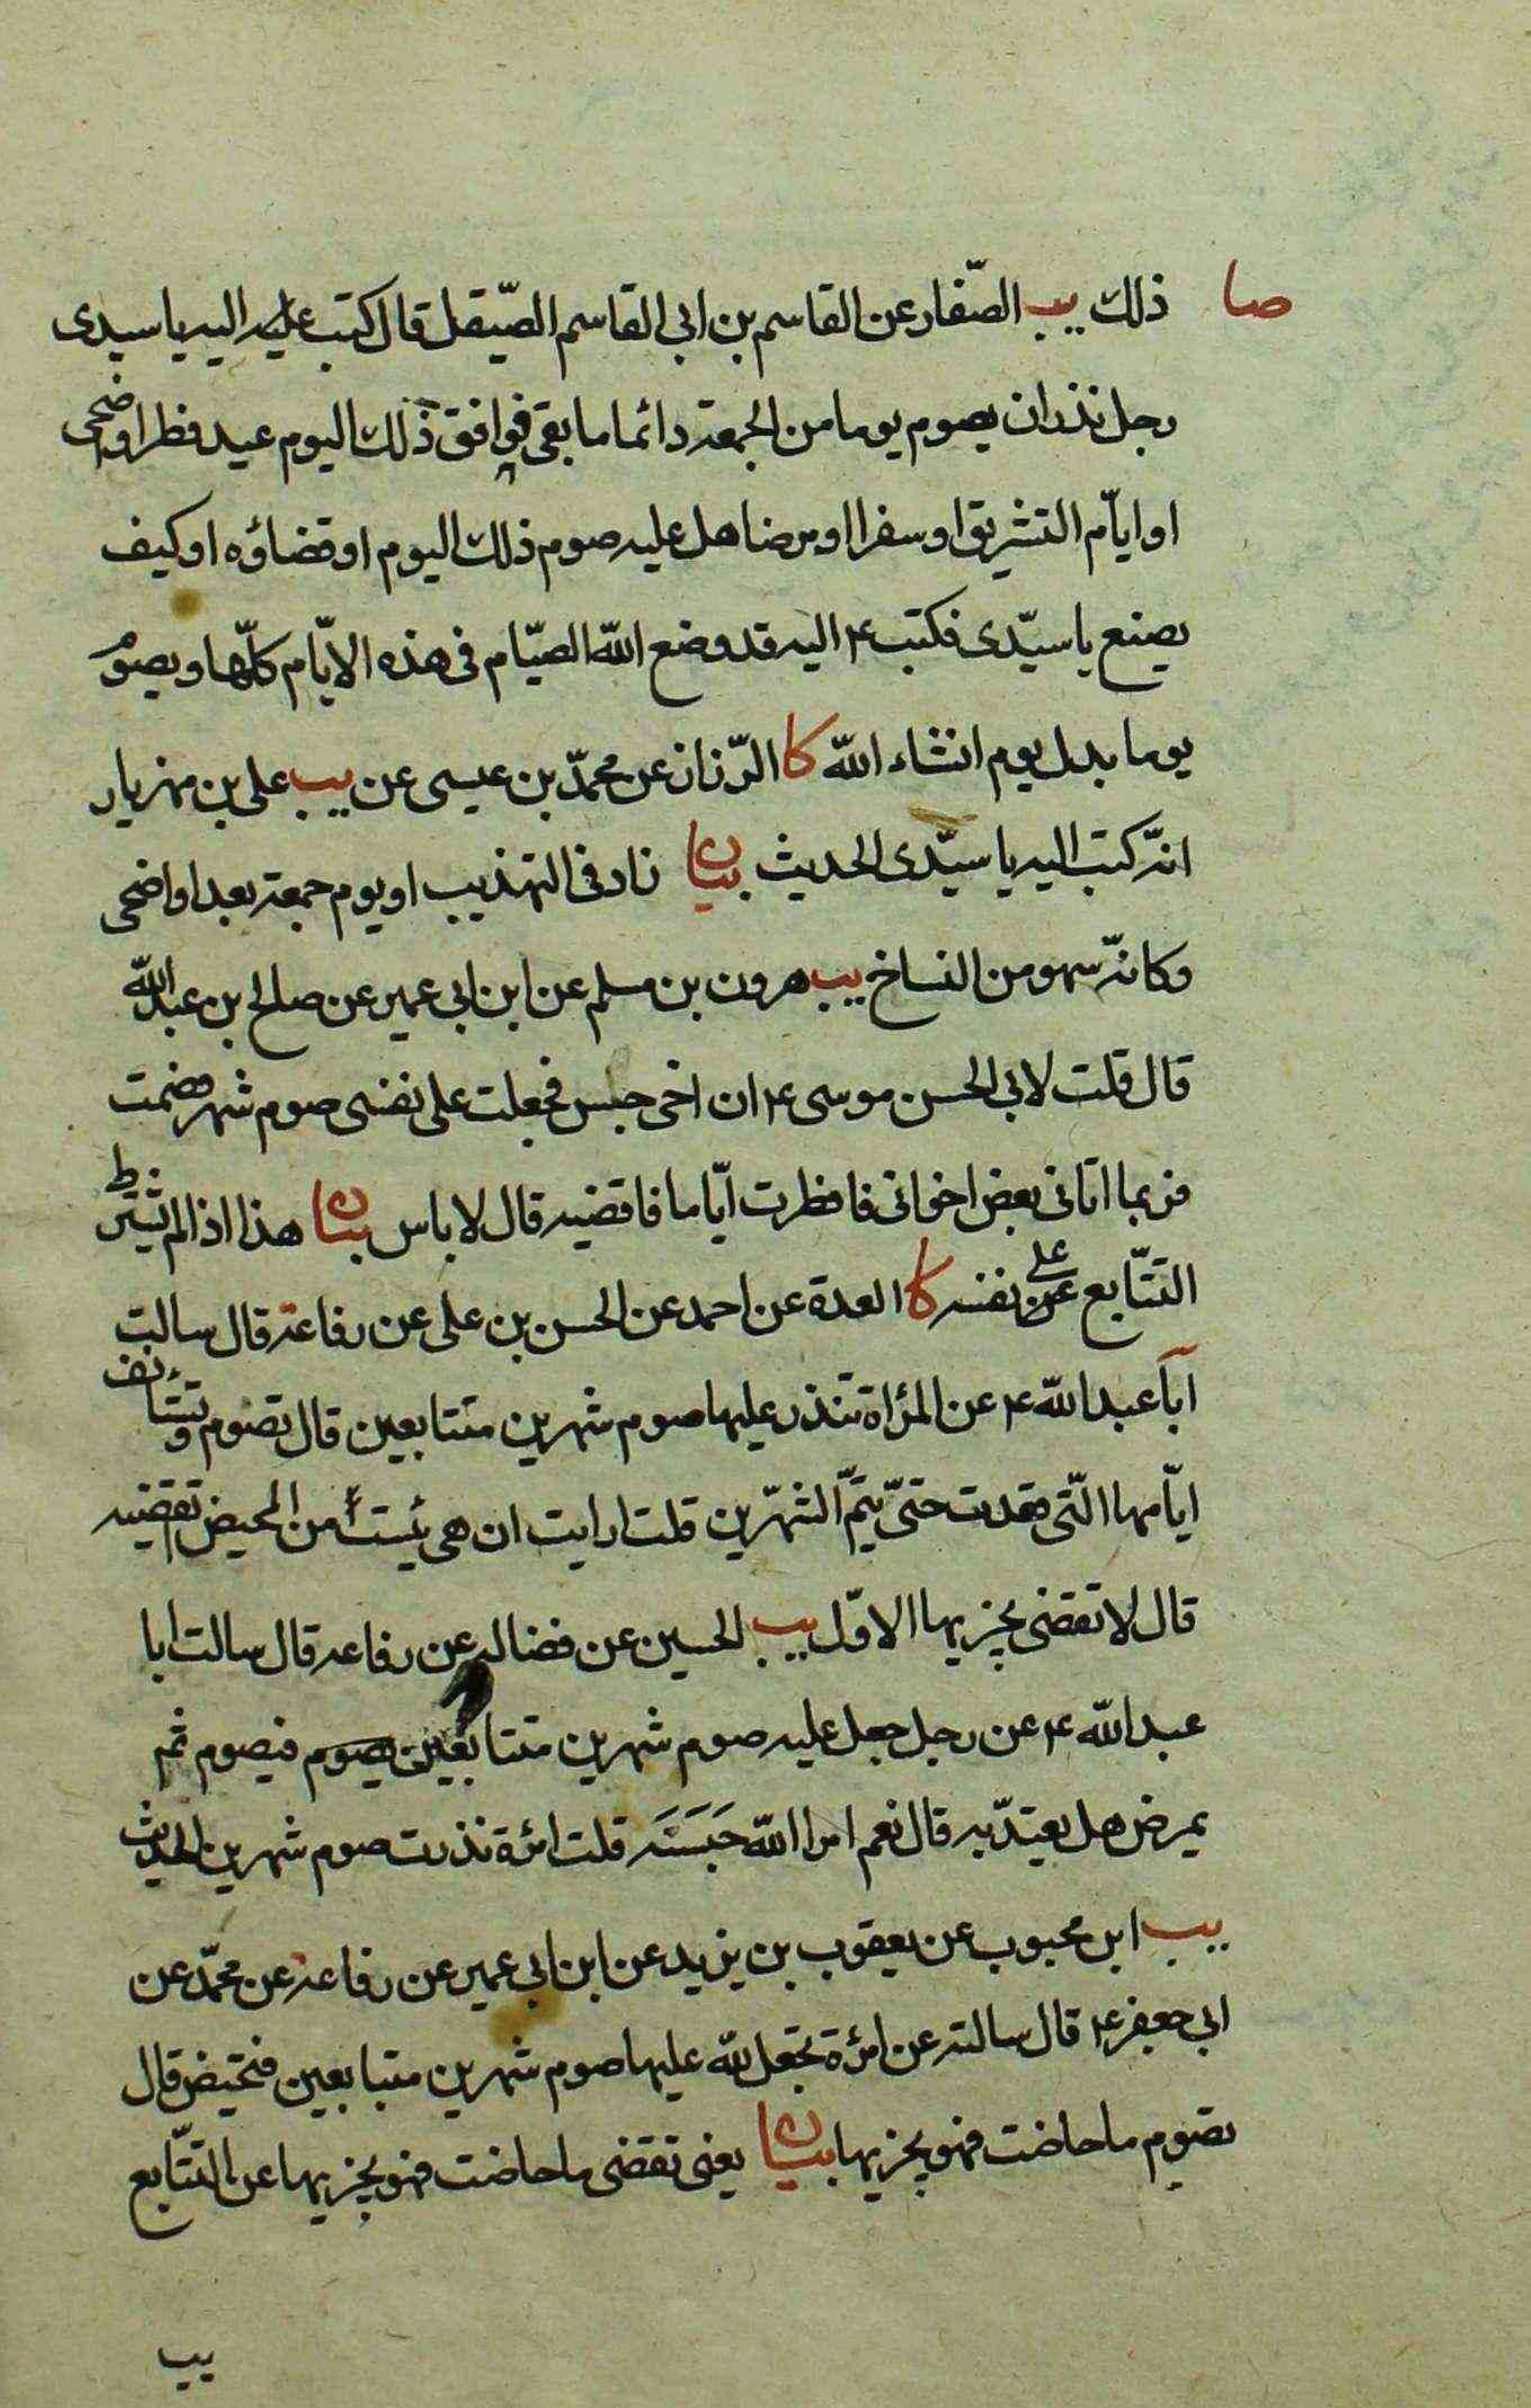 صا ذلك يب الصّفار عن القاسم بن ابی القاسم الصّيقل قال كتب اليه يا سيدی
رجل نذر ان يصوم يوما من الجمعة دائما ما بقی فوافق ذلك اليوم عيد فطر او اضحی
او ايّام التشريق او سفرا او مرضا هل عليه صوم ذلك اليوم او قضاؤه او كيف
يصنع يا سيّدی فكتب ع اليه قد وضع الله الصيّام فی هذه الايّام كلّها ويصوم
يوما بدل يوم انشاء الله كا الرّزاز عن محمّد بن عيسی عن يب علی بن مهزيار
انه كتب اليه يا سيّدی الحديث بيان زاد فی التهذيب او يوم جمعة بعد او اضحی
وكانّه سهو من النساخ يب هرون بن مسلم عن ابن ابی عمير عن صالح بن عبد الله
قال قلت لابی الحسن موسی ع ان اخی حبس فجعلت علی نفسی صوم شهر فصمت
فربما اتانی بعض اخوانی فافطرت ايّاما فاقضيه قال لا باس بيان هذا اذا لم يشترط
التتّابع علی نفسه كا العدة عن احمد عن الحسن بن علی عن رفاعة قال سالت
ابا عبد الله ع عن المرأة تنذر عليها صوم شهرين متتابعين قال تصوم وتستأنف
ايّامها الّتی قعدت حتیّ يتمّ الشهّرين قلت ارايت ان هی يئست من المحيض تقضيه
قال لا تقضی يجزيها الاوّل يب الحسين عن فضاله عن رفاعه قال سالت ابا
عبد الله ع عن رجل جعل عليه صوم شهرين متتابعين يصوم فيصوم ثم
يمرض هل يعتدّ به قال نعم امر الله حَبَسَه قلت امرٔة نذرت صوم شهرين الحديث
يب ابن محبوب عن يعقوب بن يزيد عن ابن ابی عمير عن رفاعة عن محمّد عن
ابی جعفر ع قال سالته عن امرٔة تجعل لله عليها صوم شهرين متتابعين فتحيض قال
تصوم ما حاضت فهو يجزيها بيان يعنی تقضی ما حاضت فهو يجزيها عن التتّابع
يب